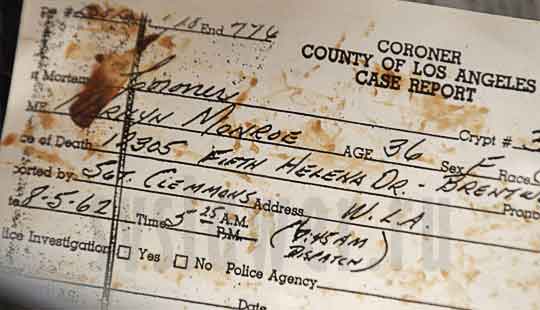 End 776
CORONER
COUNTY OF LOS ANGELES
CASE REPORT
Mortem Coroner
Crypt # 3
MARILYN MONROE AGE 36 Sex F Race
ce of Death 12305 FIFTH HELENA DR. - BRENTW
ported by SGT. CLEMMONS Address W.L.A.
te 8-5-62 Time 5 25 A.M. P.M. (4:45 AM DISPATCH)
lice Investigation Yes No Police Agency
Date